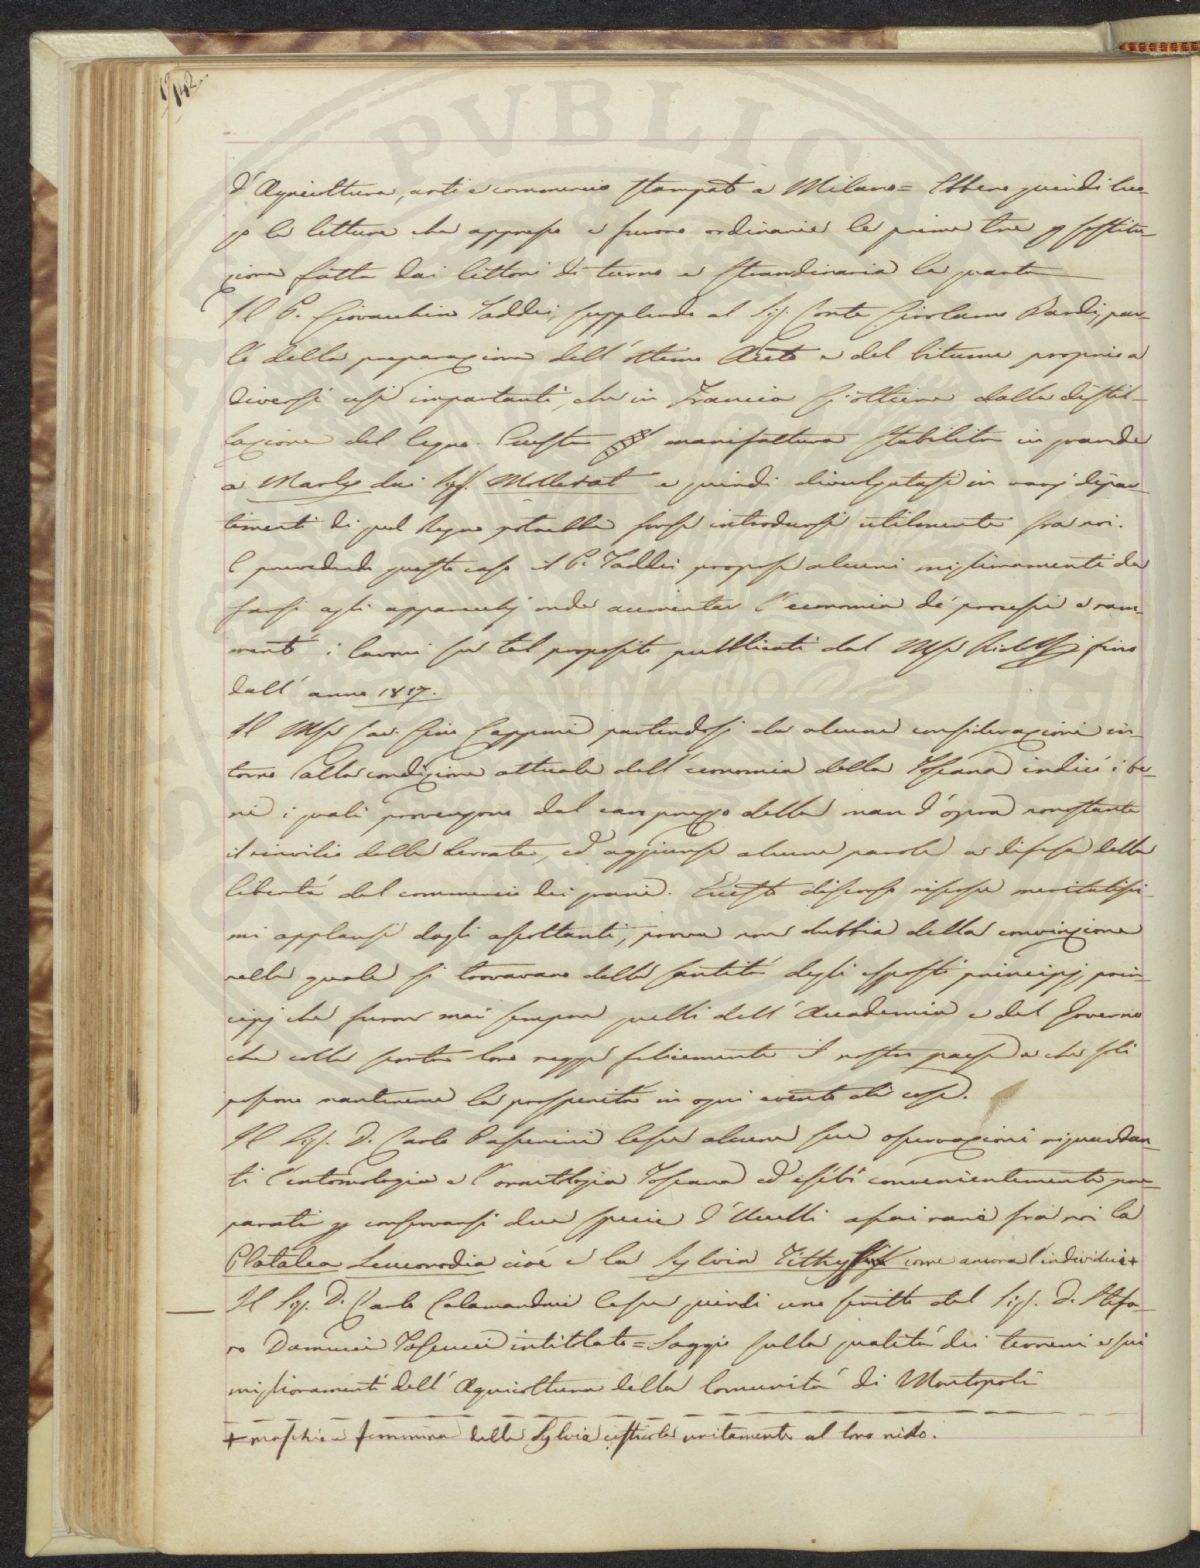 142
d'Agricoltura, arti e commercio stampato a Milano = Ebbero quindi luo-
go le letture che appresso e furono ordinarie le prime tre p sostitu-
zione fatta dai lettori di turno e straordinaria la quarta
Il P. Giovacchino Taddei supplendo al Sig. Conte Girolamo Bardi, par-
lò della preparazione dell'ottimo Aceto e del bitume proprio a
diversi usi importanti, che in Francia si ottiene dalla distil-
lazione del legno. Questa manifattura stabilita in grande
a Marly dai Sigg. Mollerat e quindi divulgatasi in varj dipar-
timenti di quel Regno potrebbe forse introdursi utilmente fra noi.
E prevedendo questo caso il P. Taddei propose alcuni miglioramenti da
farsi agli apparecchj onde aumentar l'economia de' processi e ram-
mentò i lavori su tal proposito pubblicati dal Mse Ridolfi fino
dall'anno 1817.
Il Mse Cav. Gino Capponi partendosi da alcune considerazioni in-
torno alla condizione attuale dell'economia della Toscana indicò i be-
ni i quali provengono dal caro prezzo della man d'opera nonostante
il rinvilio delle derrate, ed aggiunse alcune parole a difesa della
libertà del commercio dei grani. Questo discorso riscosse meritatissi-
mi applausi dagli ascoltanti, prova non dubbia della convinzione
nella quale si trovavano della santità degli esposti principj, prin-
cipj che furon mai sempre quelli dell'Accademia e del Governo
che colla scorta loro regge felicemente il nostro paese e che soli
possono mantenerne la prosperità in ogni evento di cose.
Il Sig. D. Carlo Passerini lesse alcune sue osservazioni riguardan-
ti l'entomologia e l'ornitologia Toscana ed esibì convenientemente pre-
parati p conservarsi due specie d'Uccelli assai rari fra noi la
Platalea Leucorodia cioè e la Sylvia Tithys come ancora l'individuo +
Il Sig. D. Carlo Calamandrei lesse quindi uno scritto del Sig. D. Stefa-
no Damucci Toscucci intitolato = Saggio sulla qualità dei terreni e sui
miglioramenti dell'Agricoltura della Comunità di Montopoli
+ maschio e femmina della Sylvia cisticola unitamente al loro nido.